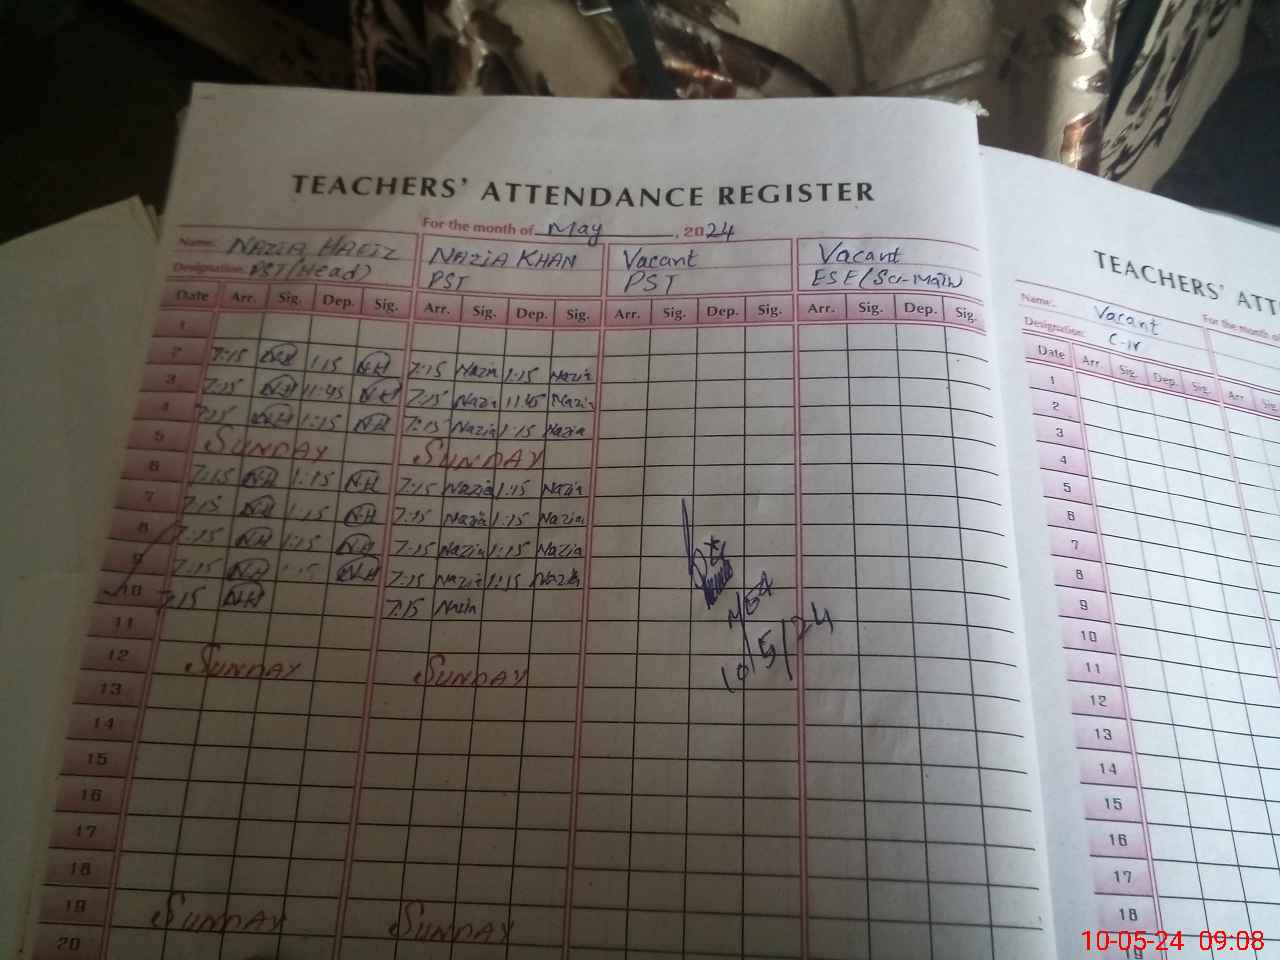 TEACHERS' ATTENDANCE REGISTER
For the month of May, 2024
Name: NAZIA HAFIZ NAZIA KHAN Vacant Vacant
Designation: PST (Head) PST PST ESE (Sci-Math)
Date Arr. Sig. Dep. Sig. Arr. Sig. Dep. Sig. Arr. Sig. Dep. Sig. Arr. Sig. Dep. Sig.
1
2 7:15 NH 1:15 NH 7:15 Nazia 1:15 Nazia
3 7:15 NH 11:45 NH 7:15 Nazia 11:45 Nazia
4 7:15 NH 1:15 NH 7:15 Nazia 1:15 Nazia
5 SUNDAY SUNDAY
6 7:15 NH 1:15 NH 7:15 Nazia 1:15 Nazia
7 7:15 NH 1:15 NH 7:15 Nazia 1:15 Nazia
8 7:15 NH 1:15 NH 7:15 Nazia 1:15 Nazia
9 7:15 NH NH 7:15 Nazia 1:15 Nazia
10 7:15 NH 7:15 Nazia
11
12 SUNDAY SUNDAY
13
14
15
16
17
18
19 SUNDAY SUNDAY
20
10/5/24
TEACHERS' ATT
Name: Vacant For the month of
Designation: C-IV
Date Arr. Sig. Dep. Sig. Arr Sig.
1
2
3
4
5
6
7
8
9
10
11
12
13
14
15
16
17
18
19
10-05-24 09:08